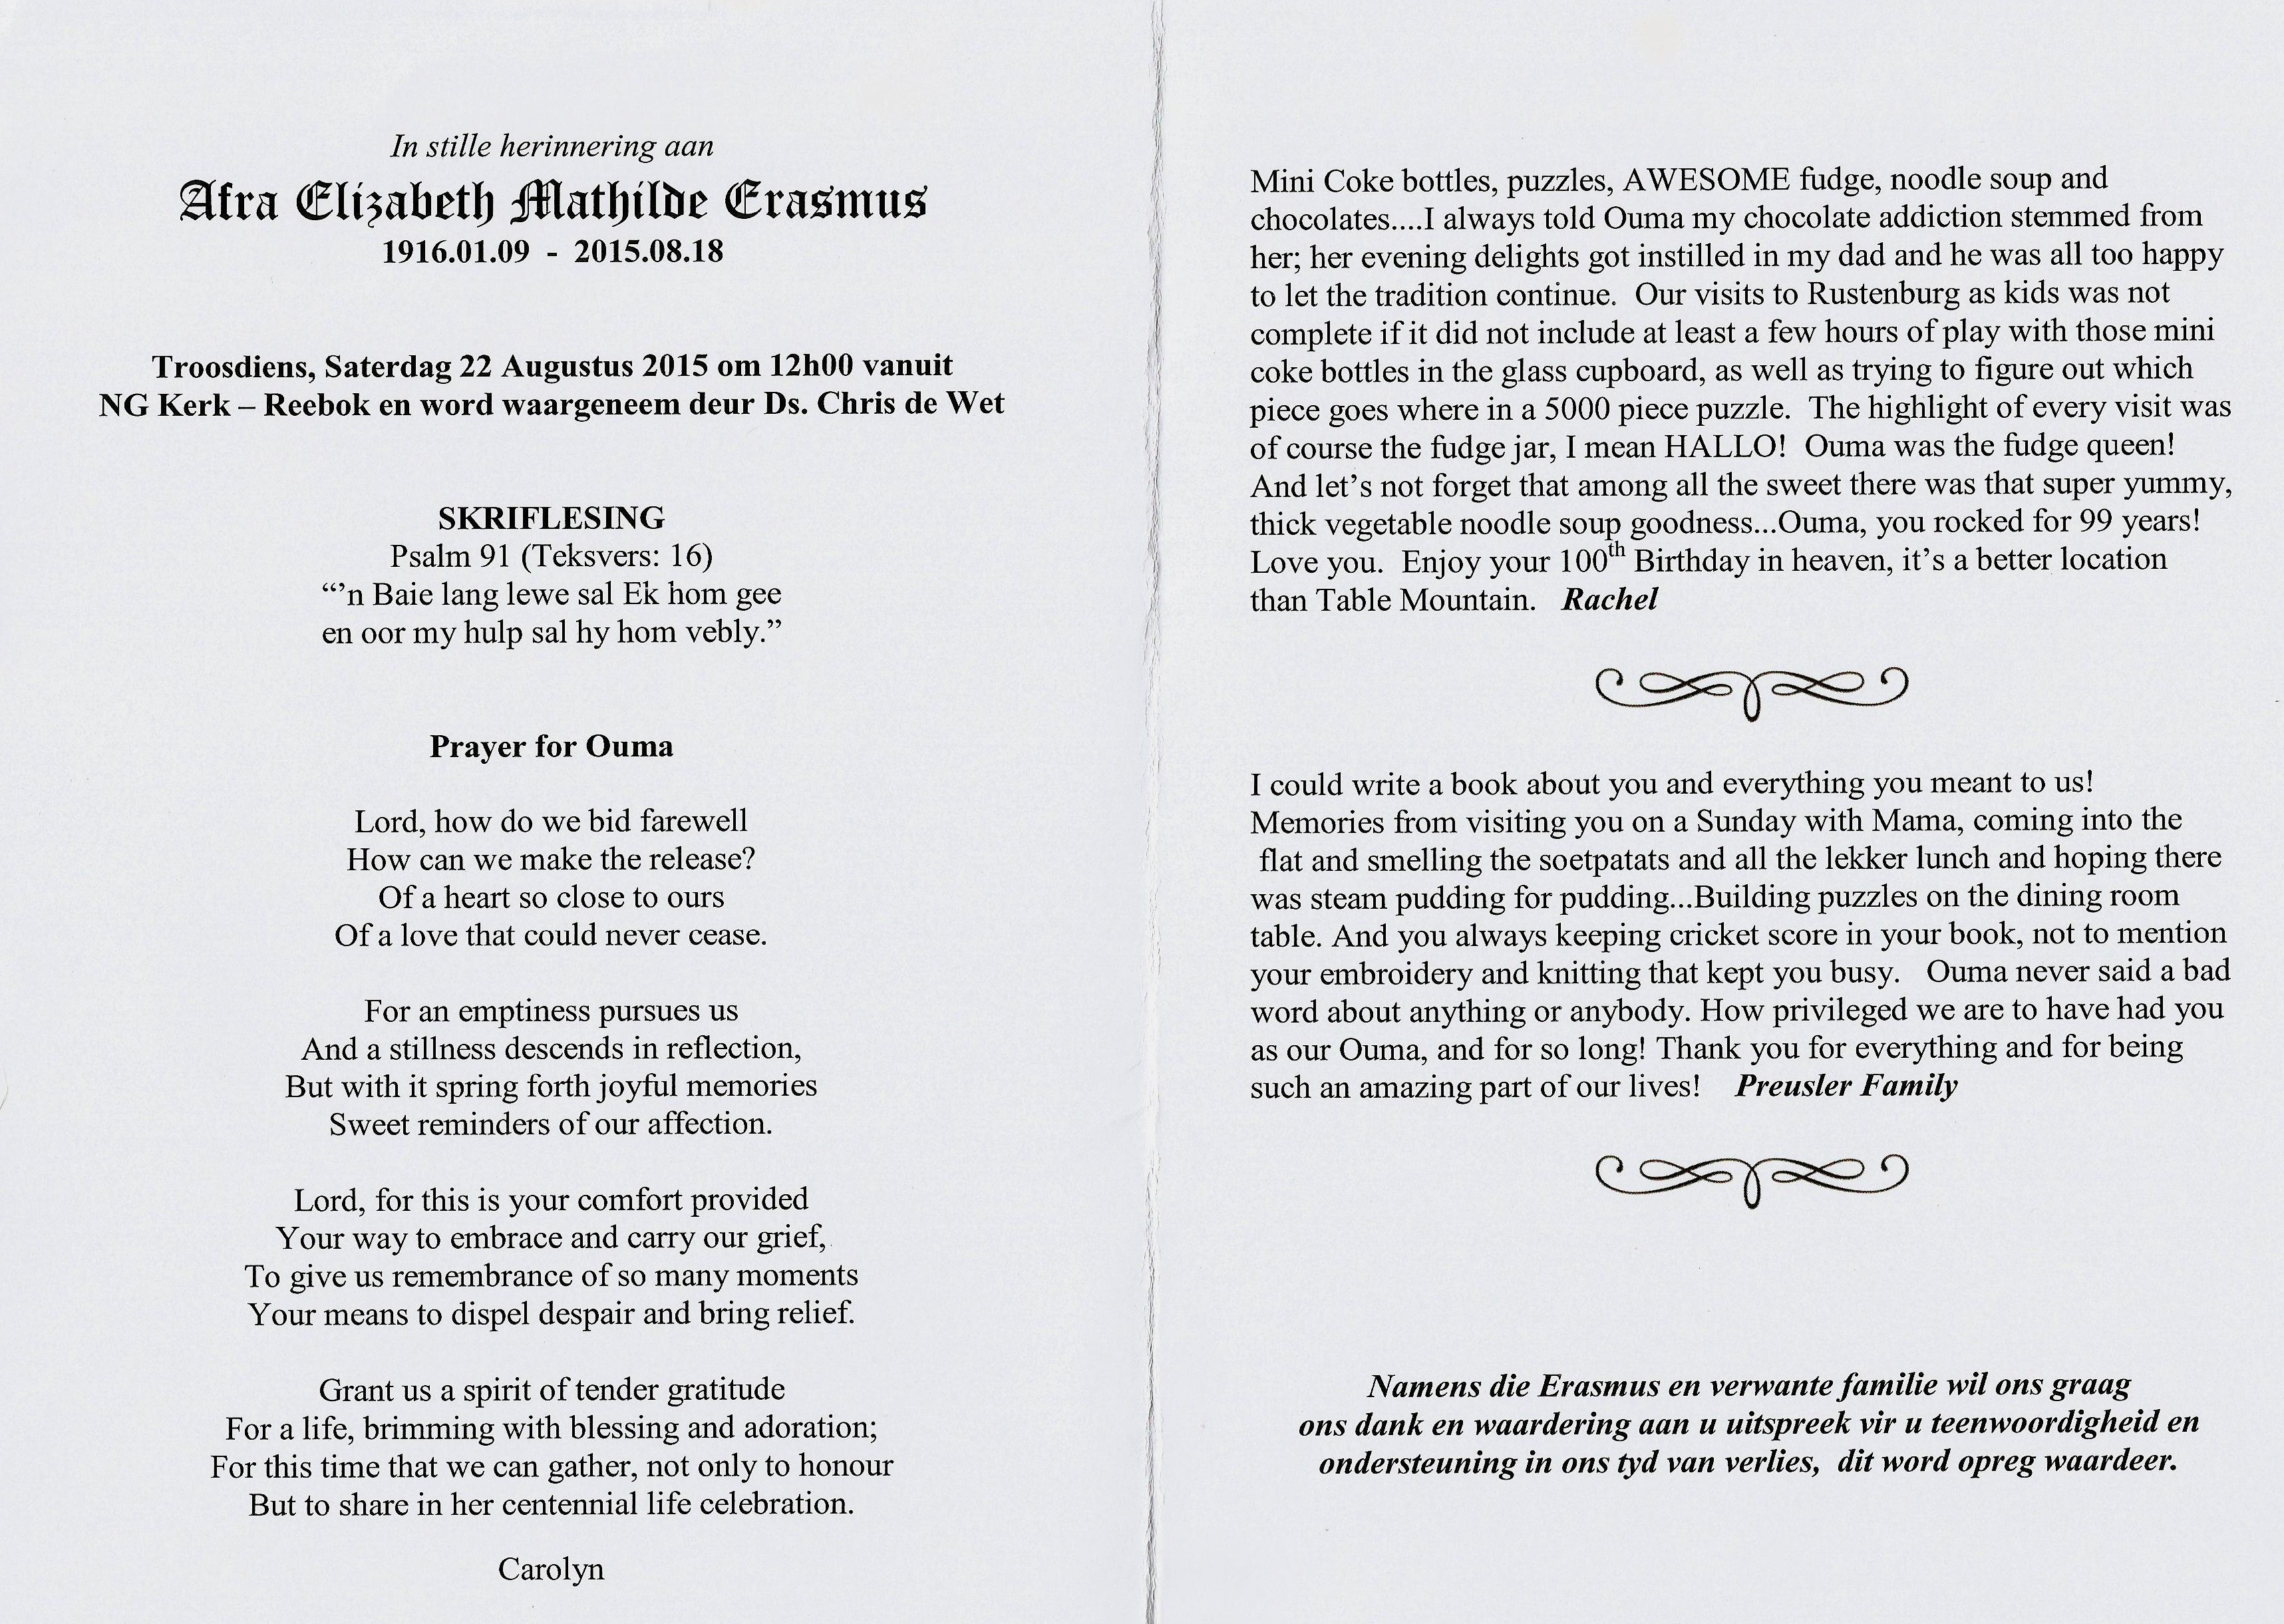 In stille herinnering aan
Afra Elizabeth Mathilde Erasmus
1916.01.09 - 2015.08.18
Troosdiens, Saterdag 22 Augustus 2015 om 12h00 vanuit
NG Kerk – Reebok en word waargeneem deur Ds. Chris de Wet
SKRIFLESING
Psalm 91 (Teksvers: 16)
“’n Baie lang lewe sal Ek hom gee
en oor my hulp sal hy hom vebly.”
Prayer for Ouma
Lord, how do we bid farewell
How can we make the release?
Of a heart so close to ours
Of a love that could never cease.
For an emptiness pursues us
And a stillness descends in reflection,
But with it spring forth joyful memories
Sweet reminders of our affection.
Lord, for this is your comfort provided
Your way to embrace and carry our grief,
To give us remembrance of so many moments
Your means to dispel despair and bring relief.
Grant us a spirit of tender gratitude
For a life, brimming with blessing and adoration;
For this time that we can gather, not only to honour
But to share in her centennial life celebration.
Carolyn
Mini Coke bottles, puzzles, AWESOME fudge, noodle soup and
chocolates....I always told Ouma my chocolate addiction stemmed from
her; her evening delights got instilled in my dad and he was all too happy
to let the tradition continue.  Our visits to Rustenburg as kids was not
complete if it did not include at least a few hours of play with those mini
coke bottles in the glass cupboard, as well as trying to figure out which
piece goes where in a 5000 piece puzzle.  The highlight of every visit was
of course the fudge jar, I mean HALLO!  Ouma was the fudge queen!
And let’s not forget that among all the sweet there was that super yummy,
thick vegetable noodle soup goodness...Ouma, you rocked for 99 years!
Love you.  Enjoy your 100th Birthday in heaven, it’s a better location
than Table Mountain.   Rachel
I could write a book about you and everything you meant to us!
Memories from visiting you on a Sunday with Mama, coming into the
flat and smelling the soetpatats and all the lekker lunch and hoping there
was steam pudding for pudding...Building puzzles on the dining room
table. And you always keeping cricket score in your book, not to mention
your embroidery and knitting that kept you busy.   Ouma never said a bad
word about anything or anybody. How privileged we are to have had you
as our Ouma, and for so long! Thank you for everything and for being
such an amazing part of our lives!    Preusler Family
Namens die Erasmus en verwante familie wil ons graag
ons dank en waardering aan u uitspreek vir u teenwoordigheid en
ondersteuning in ons tyd van verlies,  dit word opreg waardeer.